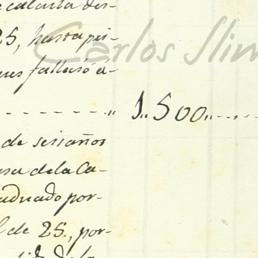 e calaria des-
25, hasta pi-
ues fallasó á-
Carlos Slim
" 1,,500,,
de seis años
asa de la Ca-
aduado por-
l de 25, por-